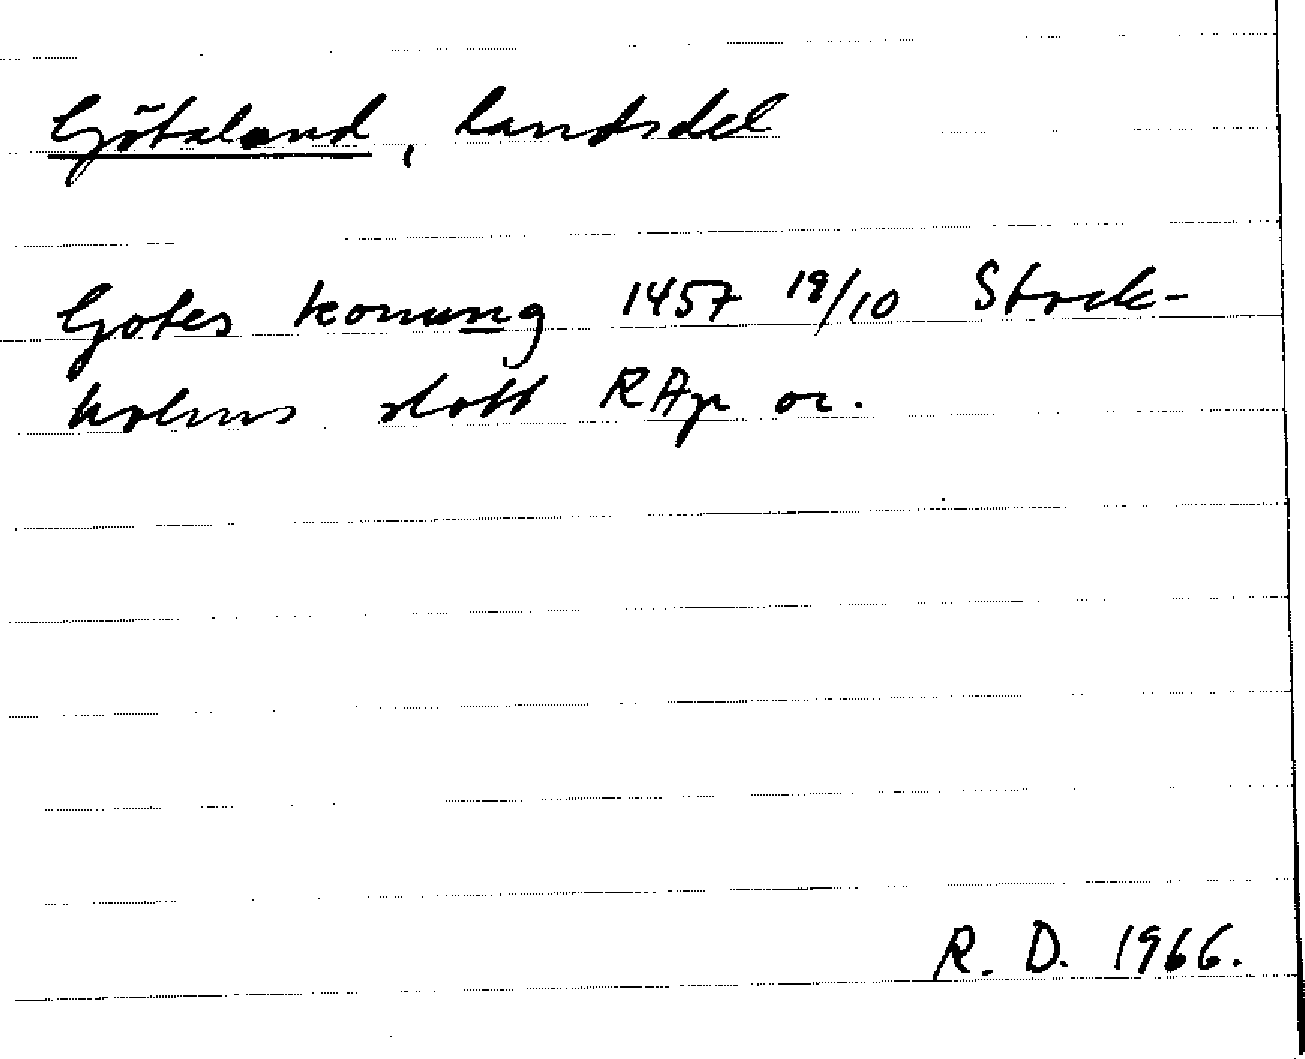 Götaland, landsdel
Gotes konung 1457 18/10 Stock-
holms slott RAp or.
R. D. 1966.